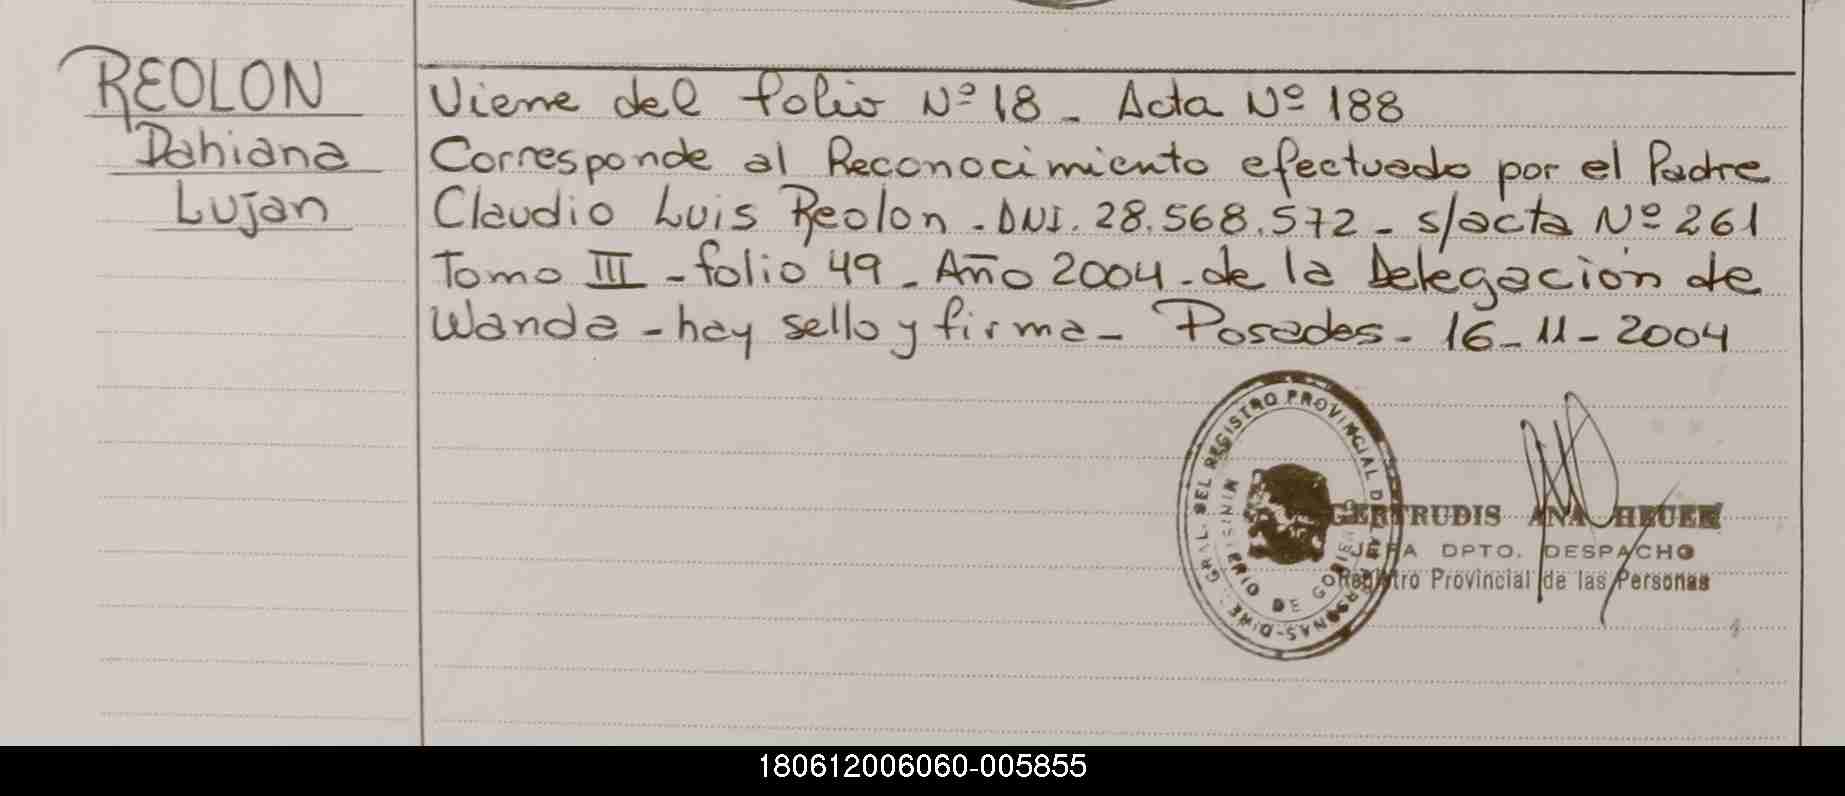 REOLON
Dahiana
Lujan
Viene del folio Nº 18 - Acta Nº 188
Corresponde al Reconocimiento efectuado por el Padre
Claudio Luis Reolon - DNI. 28.568.572 - s/acta Nº 261
Tomo III - folio 49 - Año 2004 - de la Delegación de
Wanda - hay sello y firma - Posadas - 16-11-2004
GRAL. DEL REGISTRO PROVINCIAL DE LAS PERSONAS-DIRE
DE GOBIER
GERTRUDIS ANA HEUER
JEFA DPTO. DESPACHO
Registro Provincial de las Personas
180612006060-005855